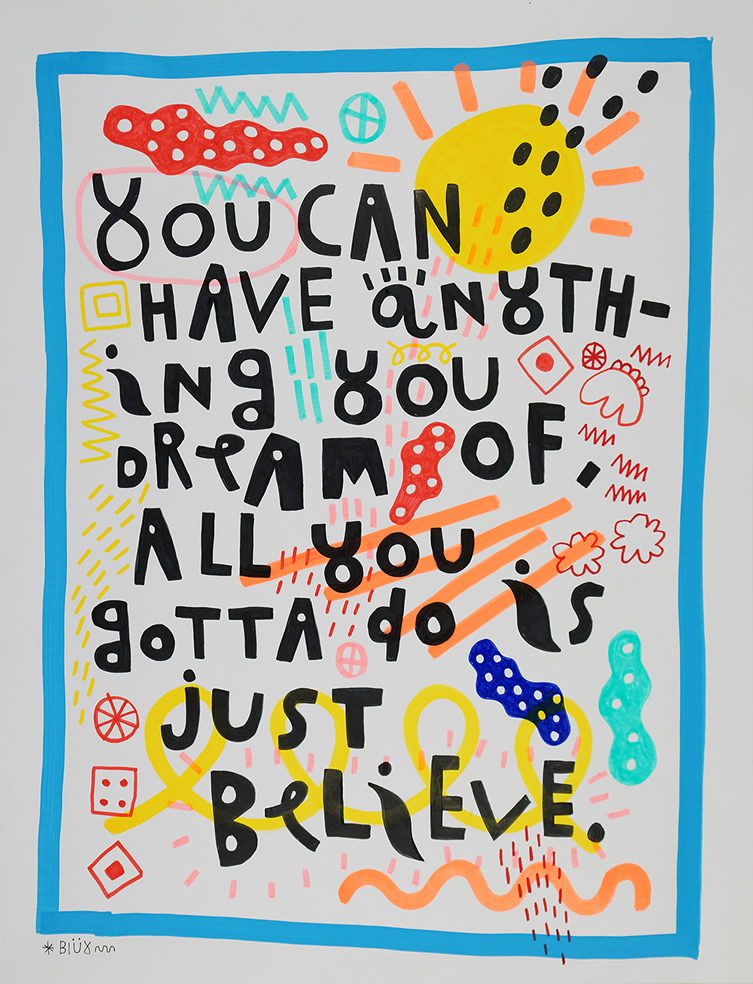 YOU CAN
HAVE aNYTH-
iNg YOU
DReAM OF,
ALL YOU
gOTTA do is
jUST
BeLiEVE.
* BlÜY